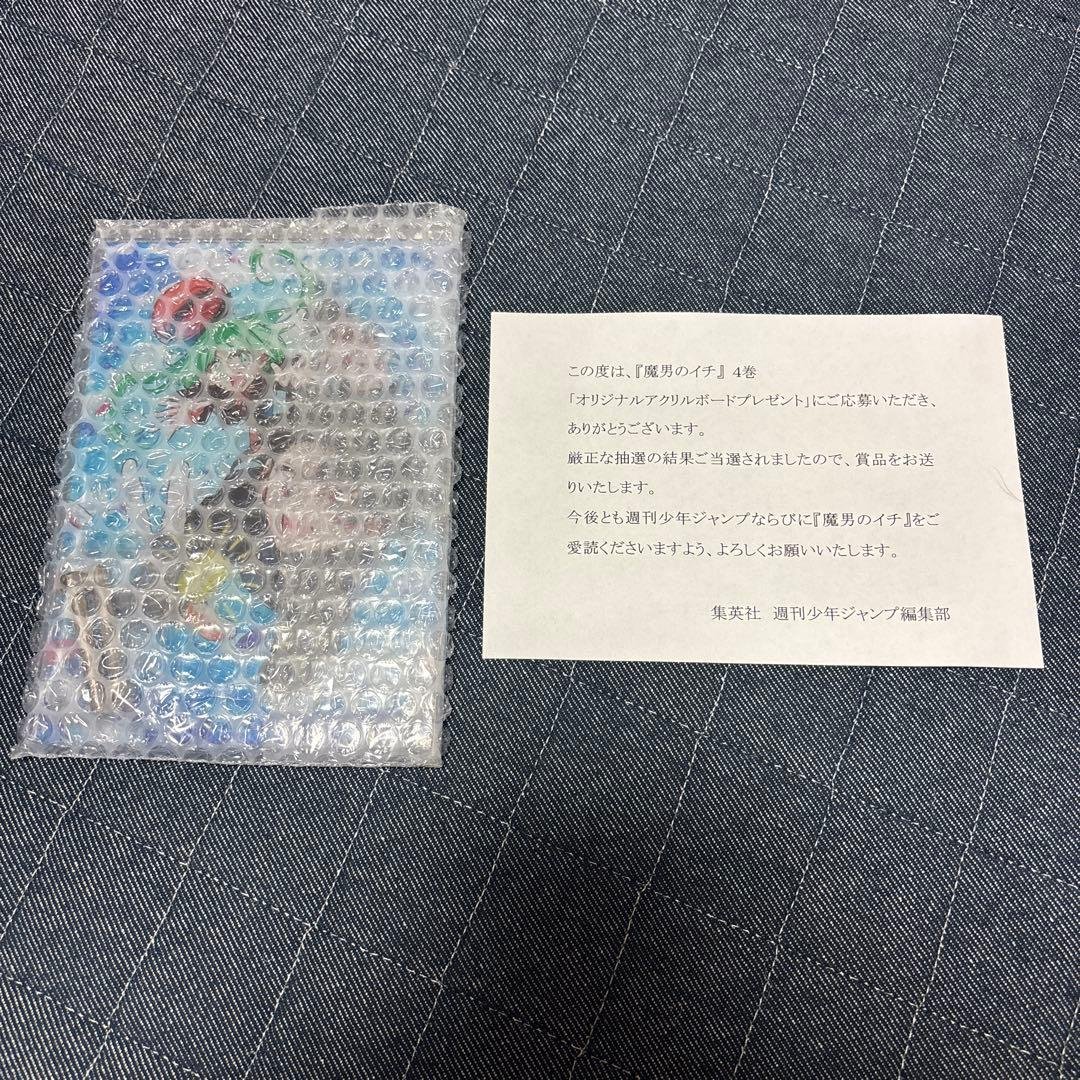 この度は、『魔男のイチ』 4巻
「オリジナルアクリルボードプレゼント」にご応募いただき、
ありがとうございます。
厳正な抽選の結果ご当選されましたので、賞品をお送
りいたします。
今後とも週刊少年ジャンプならびに『魔男のイチ』をご
愛読くださいますよう、よろしくお願いいたします。
集英社 週刊少年ジャンプ編集部